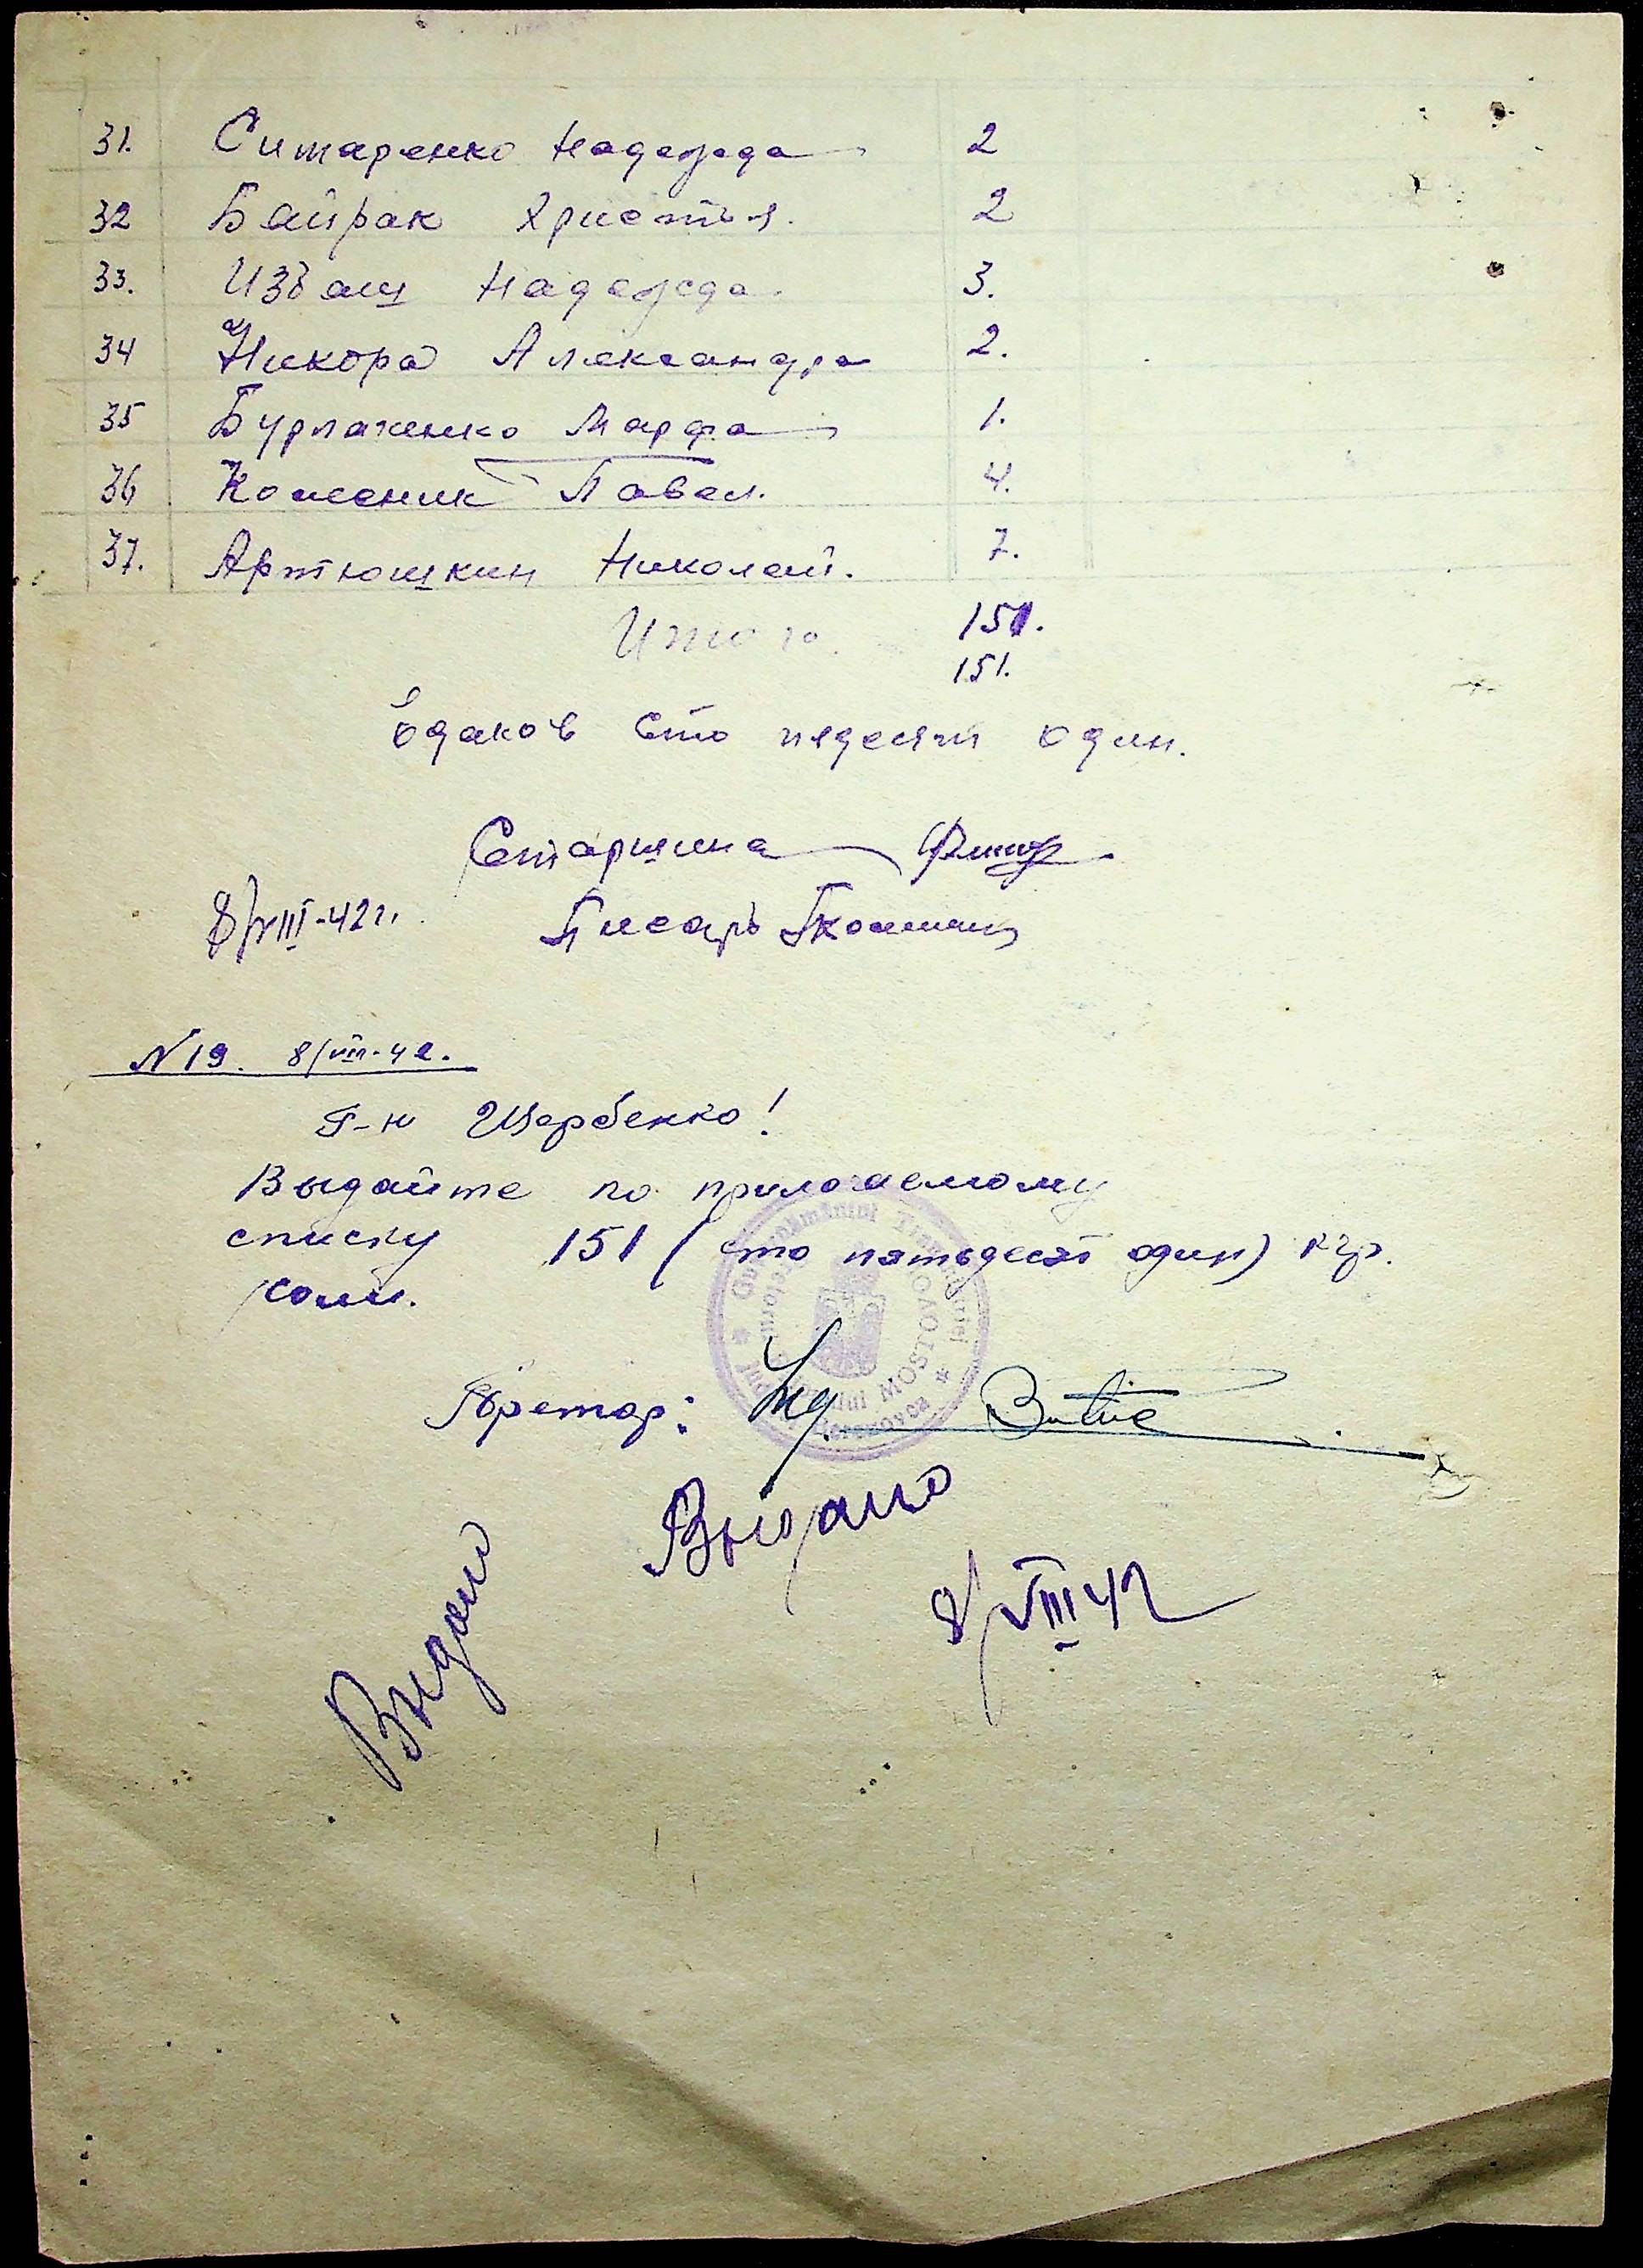 31. Ситаренко Надежда 2
32 Байрак Христья. 2
33. Избаш Надежда. 3.
34 Никора Александра 2.
35 Бурлаченко Марфа 1.
36 Колесник Павел. 4.
37. Артюшкин Николай. 7.
Итого. 151.
151.
Едаков сто пядесят один.
Старшина
8/VIII-42 г. Писарь
N 19. 8/VIII-42.
Г-н Щербенко!
Выдайте по прилагаемому
списку 151 (сто пятьдесят один) кгр.
соли.
Guvernământul Transnistriei
MOSTOVOI
Претор: Ing.
Выдано
8/VIII 42
Выдано